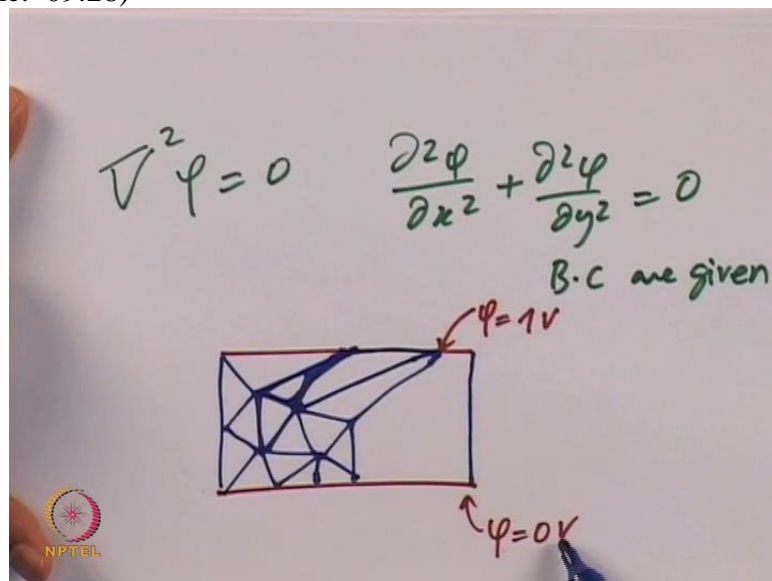 ∇²φ = 0    ∂²φ/∂x² + ∂²φ/∂y² = 0
B.C are given
φ = 1V
φ = 0V
NPTEL